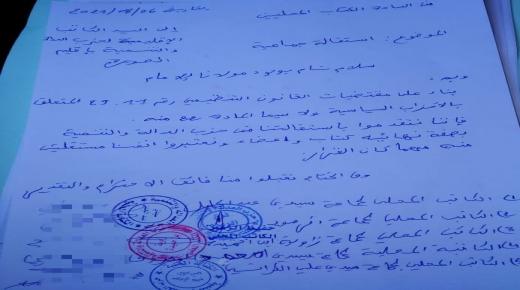 من السادة الكتاب المحليين
بتاريخ 2021/08/06
إلى السيد الكاتب
الإقليمي لحزب العدالة
والتنمية بإقليم
الموضوع: استقالة جماعية
سلام تام بوجود مولانا الإمام
وبعد
بناء على مقتضيات القانون التنظيمي رقم 29.11 المتعلق
بالأحزاب السياسية ولا سيما المادة منه
فإننا نتقدموا باستقالتنا من حزب العدالة والتنمية
بصفة نهائية كتاب وأعضاء ونعتبروا أنفسنا مستقلين
منه مهما كان القرار.
وفي الختام تقبلوا منا فائق الاحترام والتقدير
الكاتب المحلي لجماعة سيدي
الكاتب المحلي لجماعة
الكاتب المحلي لجماعة زاوية
الكاتبة المحلية لجماعة سيدي
الكاتب المحلي لجماعة سيدي علي